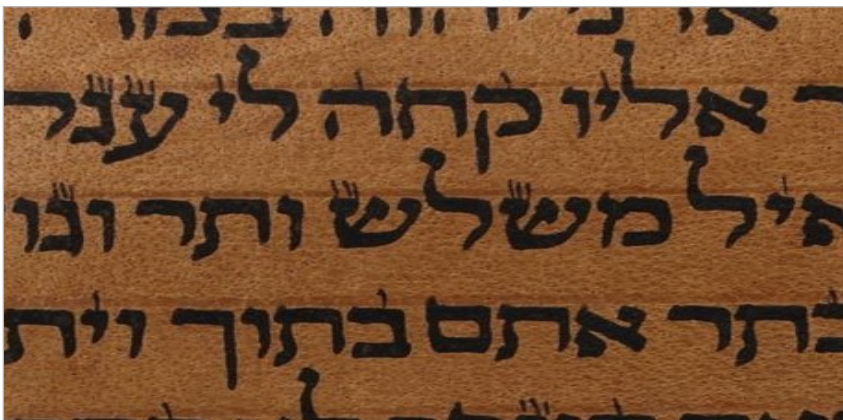 אליו קחה לי עגל
איל משלש ותר וגו
בתר אתם בתוך וית